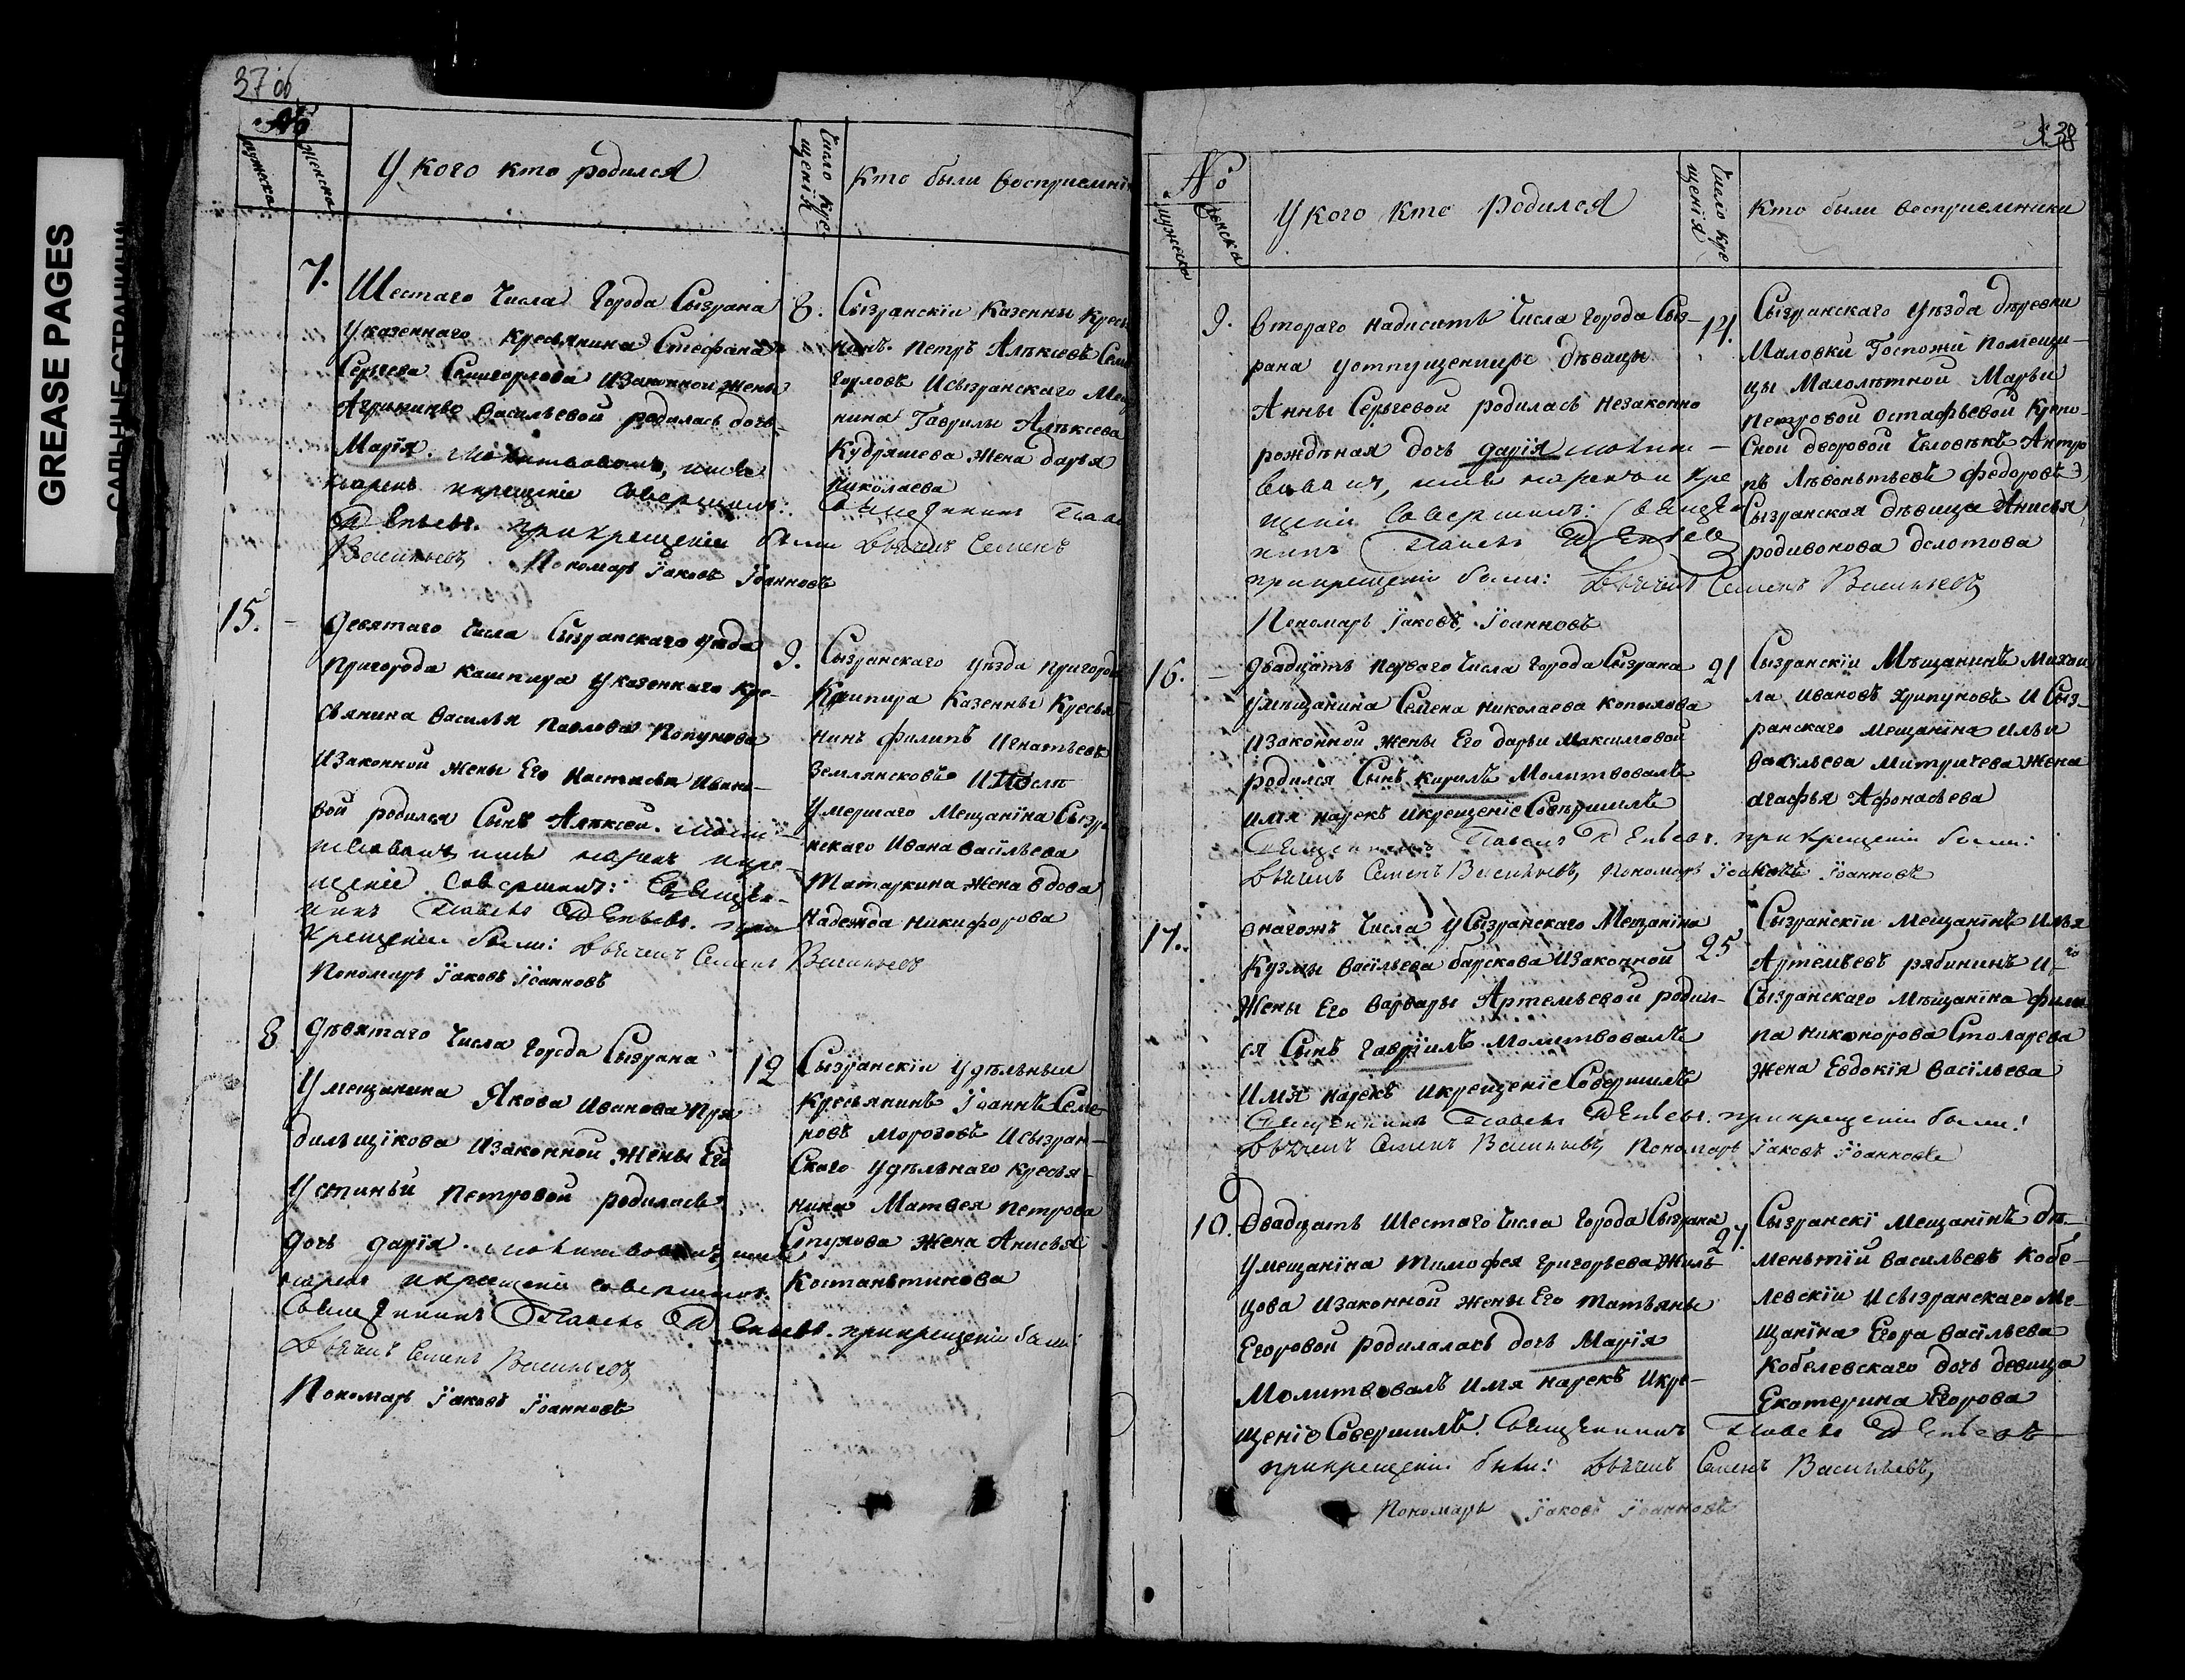 GREASE PAGES
САЛЬНЫЕ СТРАНИЦЫ
37 об
№
мужеска
женска
У кого кто родился
Число кре-
щенїя
Кто были восприемни
7.
Шестаго Числа Города Сызрана
У казеннаго кресьянина Стефана
Сергеева Семигорлова Изаконной жены
Агрипины Васильевой родилась дочь
Марїя. молитвовалъ, имя
нарекъ икрещенїе Совершилъ:
при крещенїи были Дьячикъ Семенъ
Васильевъ Пономарь Іаковъ Іоанновъ
8.
Сызранскїи Казенны Кресь
нинъ Петръ Алѣксевъ Семи
горловъ Исызранскаго Мещ
нина Гаврилы Алѣксева
Кудряшева Жена дарья
Николаева
Священникъ Паве
15.
Девятаго Числа Сызранскаго уезда
Пригорода Кашпира Указеннаго кре-
сьянина Василья Павлова Попунова
Изаконной жены Его Настасьи Ивано-
вой родился Сынъ Алѣксеи. моли-
твовалъ имя нарекъ икре-
щенїе Совершилъ: Священ-
никъ Павелъ при
крещенїи были: Дьячикъ Семенъ Васильевъ
Пономарь Іаковъ Іоанновъ
9.
Сызранскаго уѣзда пригорода
Кашпира Казенны Кресья
нинъ Филипъ Игнатьевъ
Землянсковъ И Послѣ
Умершаго Мещанїна Сызра
нскаго Ивана Васїльева
Татаркина жена вдова
Надежда Никифорова
8
Дѣвятаго Числа Города Сызрана
У мещанина Якова Иванова Пря
дильщїкова Изаконной Жены Его
Устиньи Петровой родилась
дочь дарїя. молитвовалъ имя
нарекъ икрещенїе совершилъ.
Священникъ Павелъ прикрещенїи были
Дьячикъ Семенъ Васильевъ
Пономарь Іаковъ Іоанновъ
12
Сызранскїи Удѣльныи
Кресьянинъ Іоаннъ Семе-
новъ Морозовъ Исызран-
Скаго Удѣльнаго кресья-
нина Матвея Петрова
жена Анисья
Костаньтинова
38
№
мужеска
женска
У кого кто родился
Число кре
щенїя
Кто были восприемники
9.
Втораго надесять Числа города Сыз-
рана уотпущенницы дѣвицы
Анны Сергеевой родилась незаконно
рожденая дочь дарїя молит-
вовалъ, имя нарекъ и кре
щенїе Совершилъ: Священ
никъ Павелъ
прикрещенїи были: Дьячикъ Семенъ Васильевъ
Пономарь Іаковъ, Іоанновъ
14.
Сызранскаго Уѣзда дѣревни
Маловки Госпожи помещи-
цы Малолѣтной Марьи
Петровой Остафьевой Крепо-
Сной дворовой Человѣкъ Антро
пъ Лѣвоньтьевъ Федоровъ
Сызранская дѣвица Анисья
родивонова долотова
16.
Двадцать перваго Числа города Сызрана
Умѣщанина Семена Николаева Копылова
Изаконной Жены Его дарьи Максимовой
родился Сынъ Кирилъ Молитвовалъ
имя нарекъ икрещенїе Совершилъ
Священникъ Павелъ прикрещенїи были:
Дьячикъ Семенъ Васильевъ, Пономарь Іаковъ Іоанновъ
21
Сызранскїи Мѣщанинъ Михаи
ла Ивановъ Хрипуновъ И Сыз-
ранскаго Мещанїна Ильи
Васїльева Митричева Жена
Агафья Афонасьева
17.
Оногожъ Числа у Сызранскаго Мещанїна
Кузмы Васїльева барскова Изаконной
Жены Его Варвары Артемьевой родил-
ся Сынъ Гаврїилъ Молитвовалъ
Имя нарекъ икрещенїе Совершилъ
Священникъ Павелъ прикрещенїи были:
Дьячикъ Семенъ Васильевъ Пономарь Іаковъ Іоанновъ
25
Сызранскїи Мещанїнъ Илья
Артемьевъ рябининъ И
Сызранскаго Мѣщанїна Фили
па Никонорова Столарева
Жена Евдокїя Васїльева
10.
Двадцать Шестаго Числа Города Сызрана
Умещанїна Тимофея Григорьева Жиль
цова Изаконной жены Его Татьяны
Егоровой родилалась дочь Марїя
Молитвовалъ Имя нарекъ Икре-
щенїе Совершилъ. Священникъ Павелъ
прикрещенїи были: Дьячикъ Семенъ Васильевъ,
Пономарь Іаковъ Іоанновъ
27.
Сызранскї Мещанїнъ Де-
меньтїй Васильевъ Кобе-
левскїи Исызранскаго Ме-
щанїна Егора Васїльева
Кобелевскаго дочь девица
Екатерина Егорова